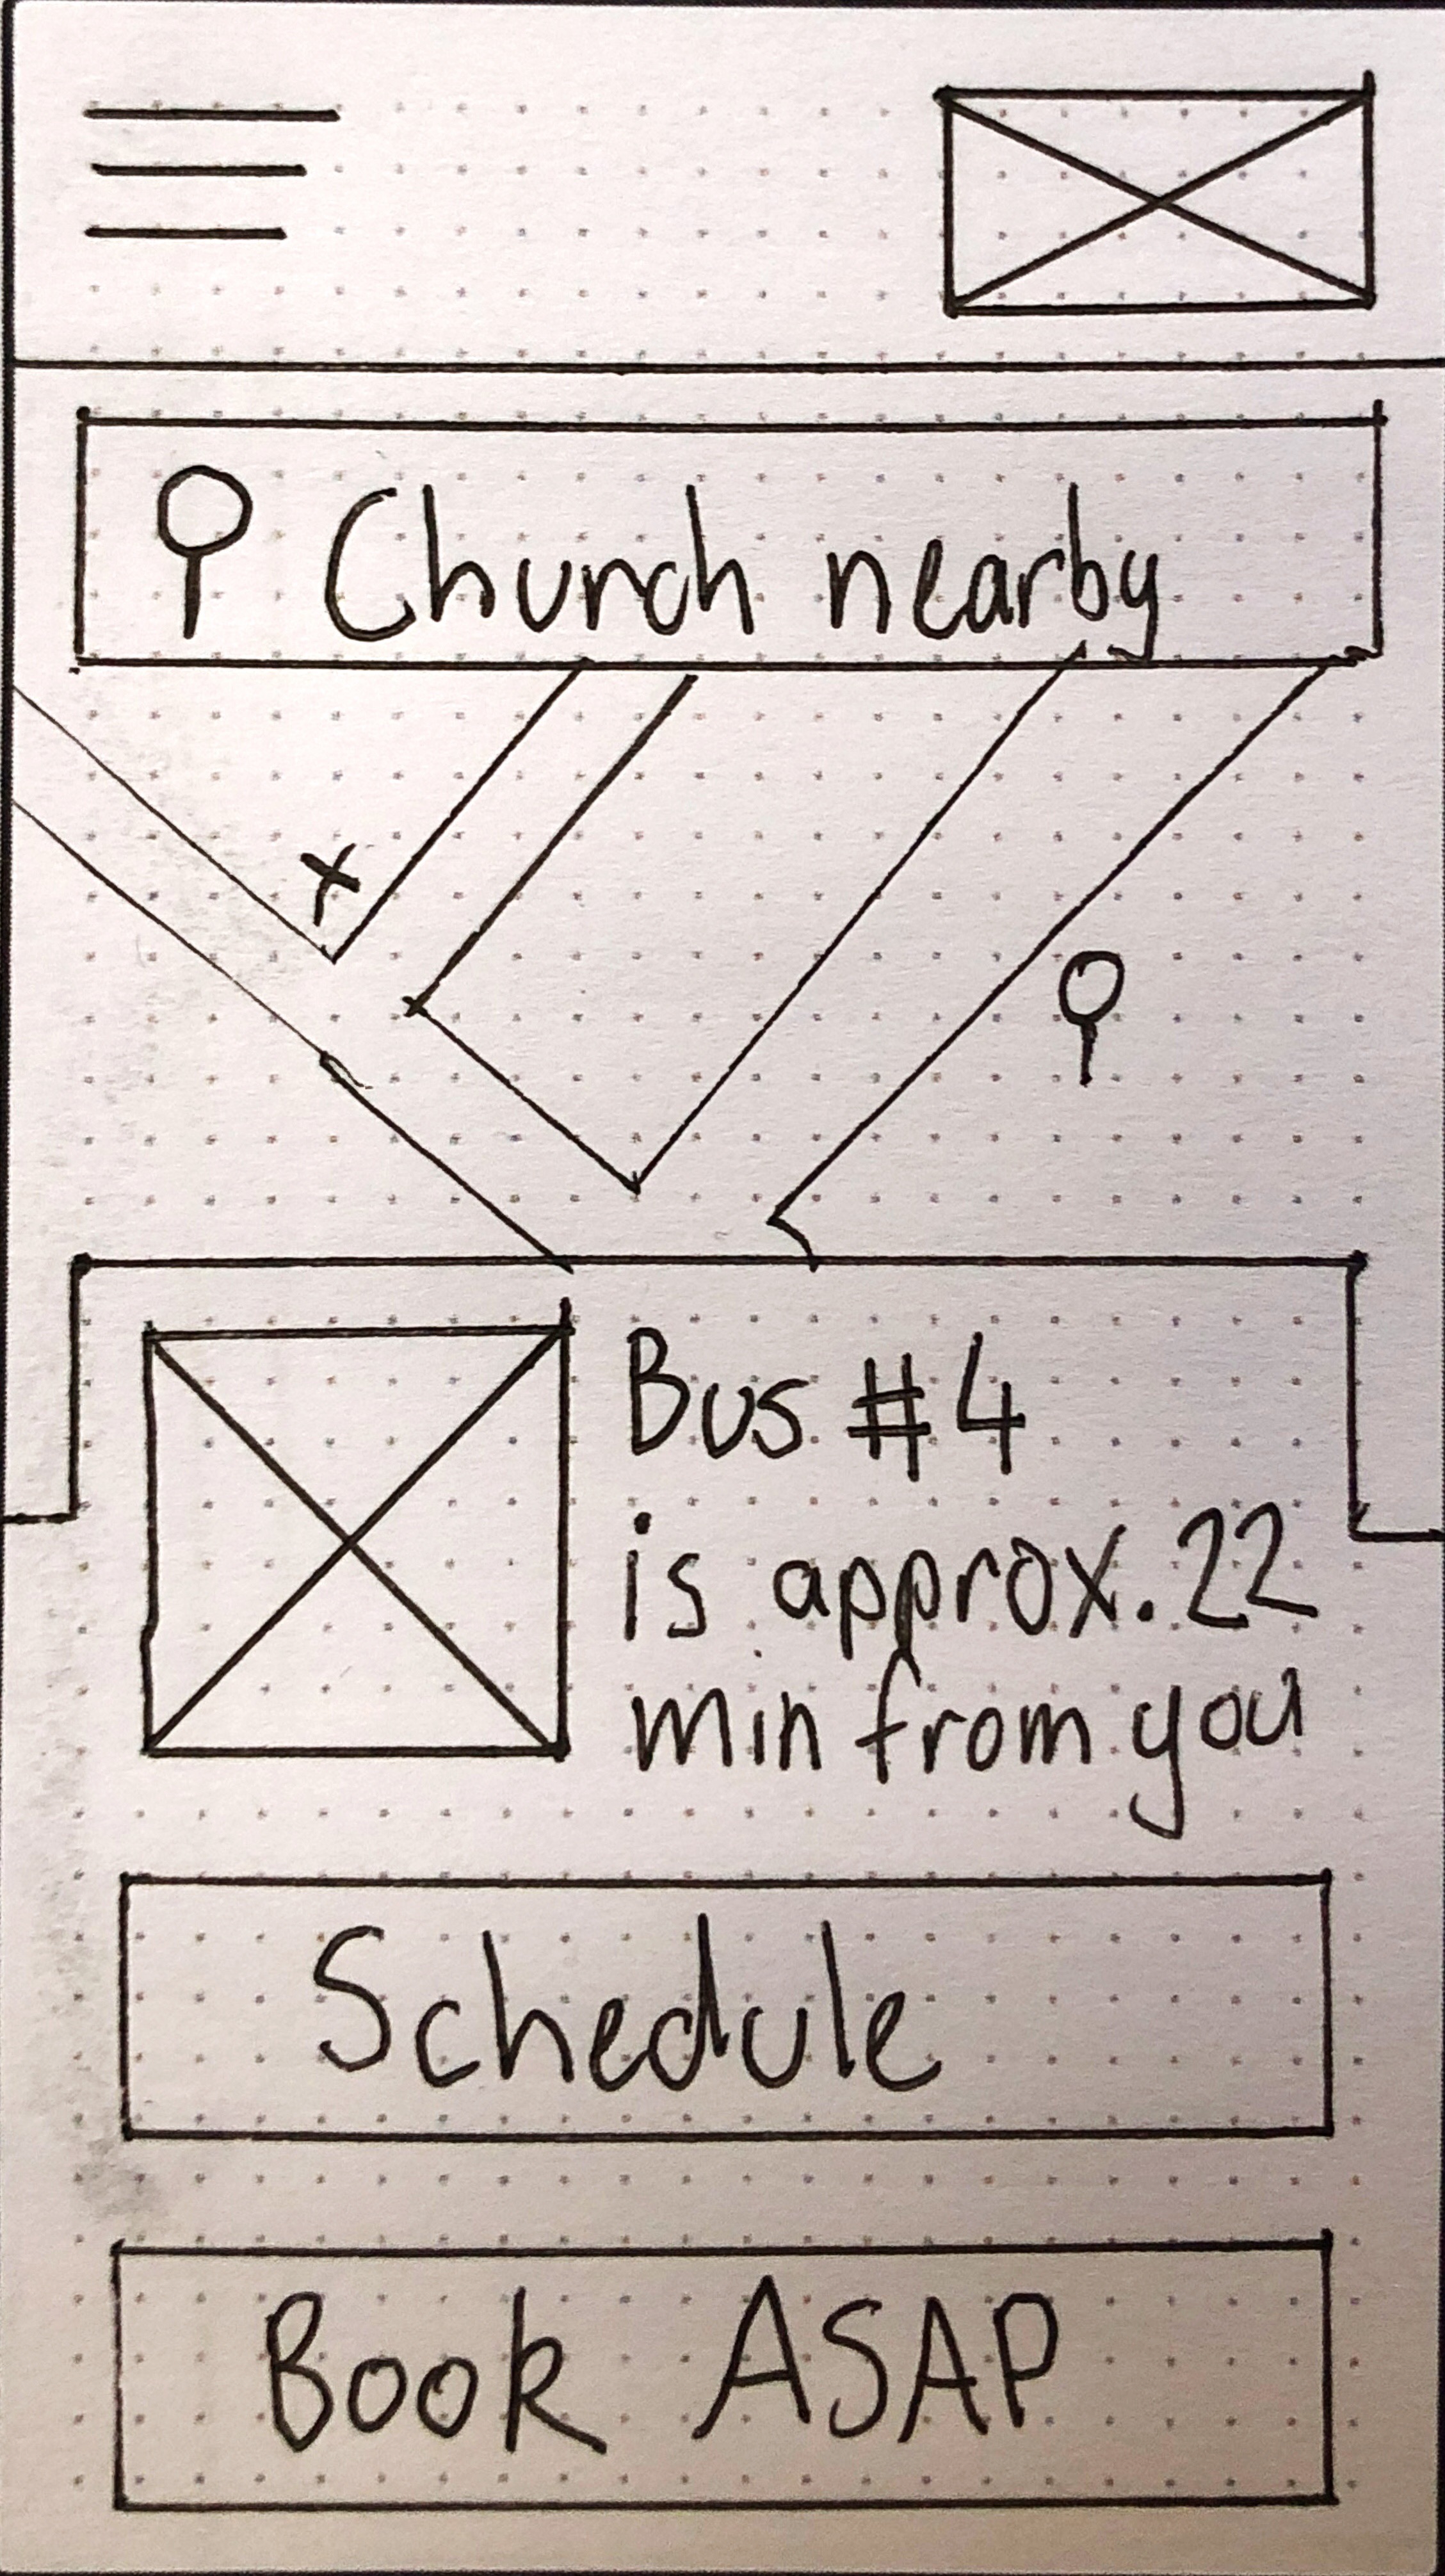 Church nearby
Bus #4
is approx. 22
min from you
Schedule
Book ASAP